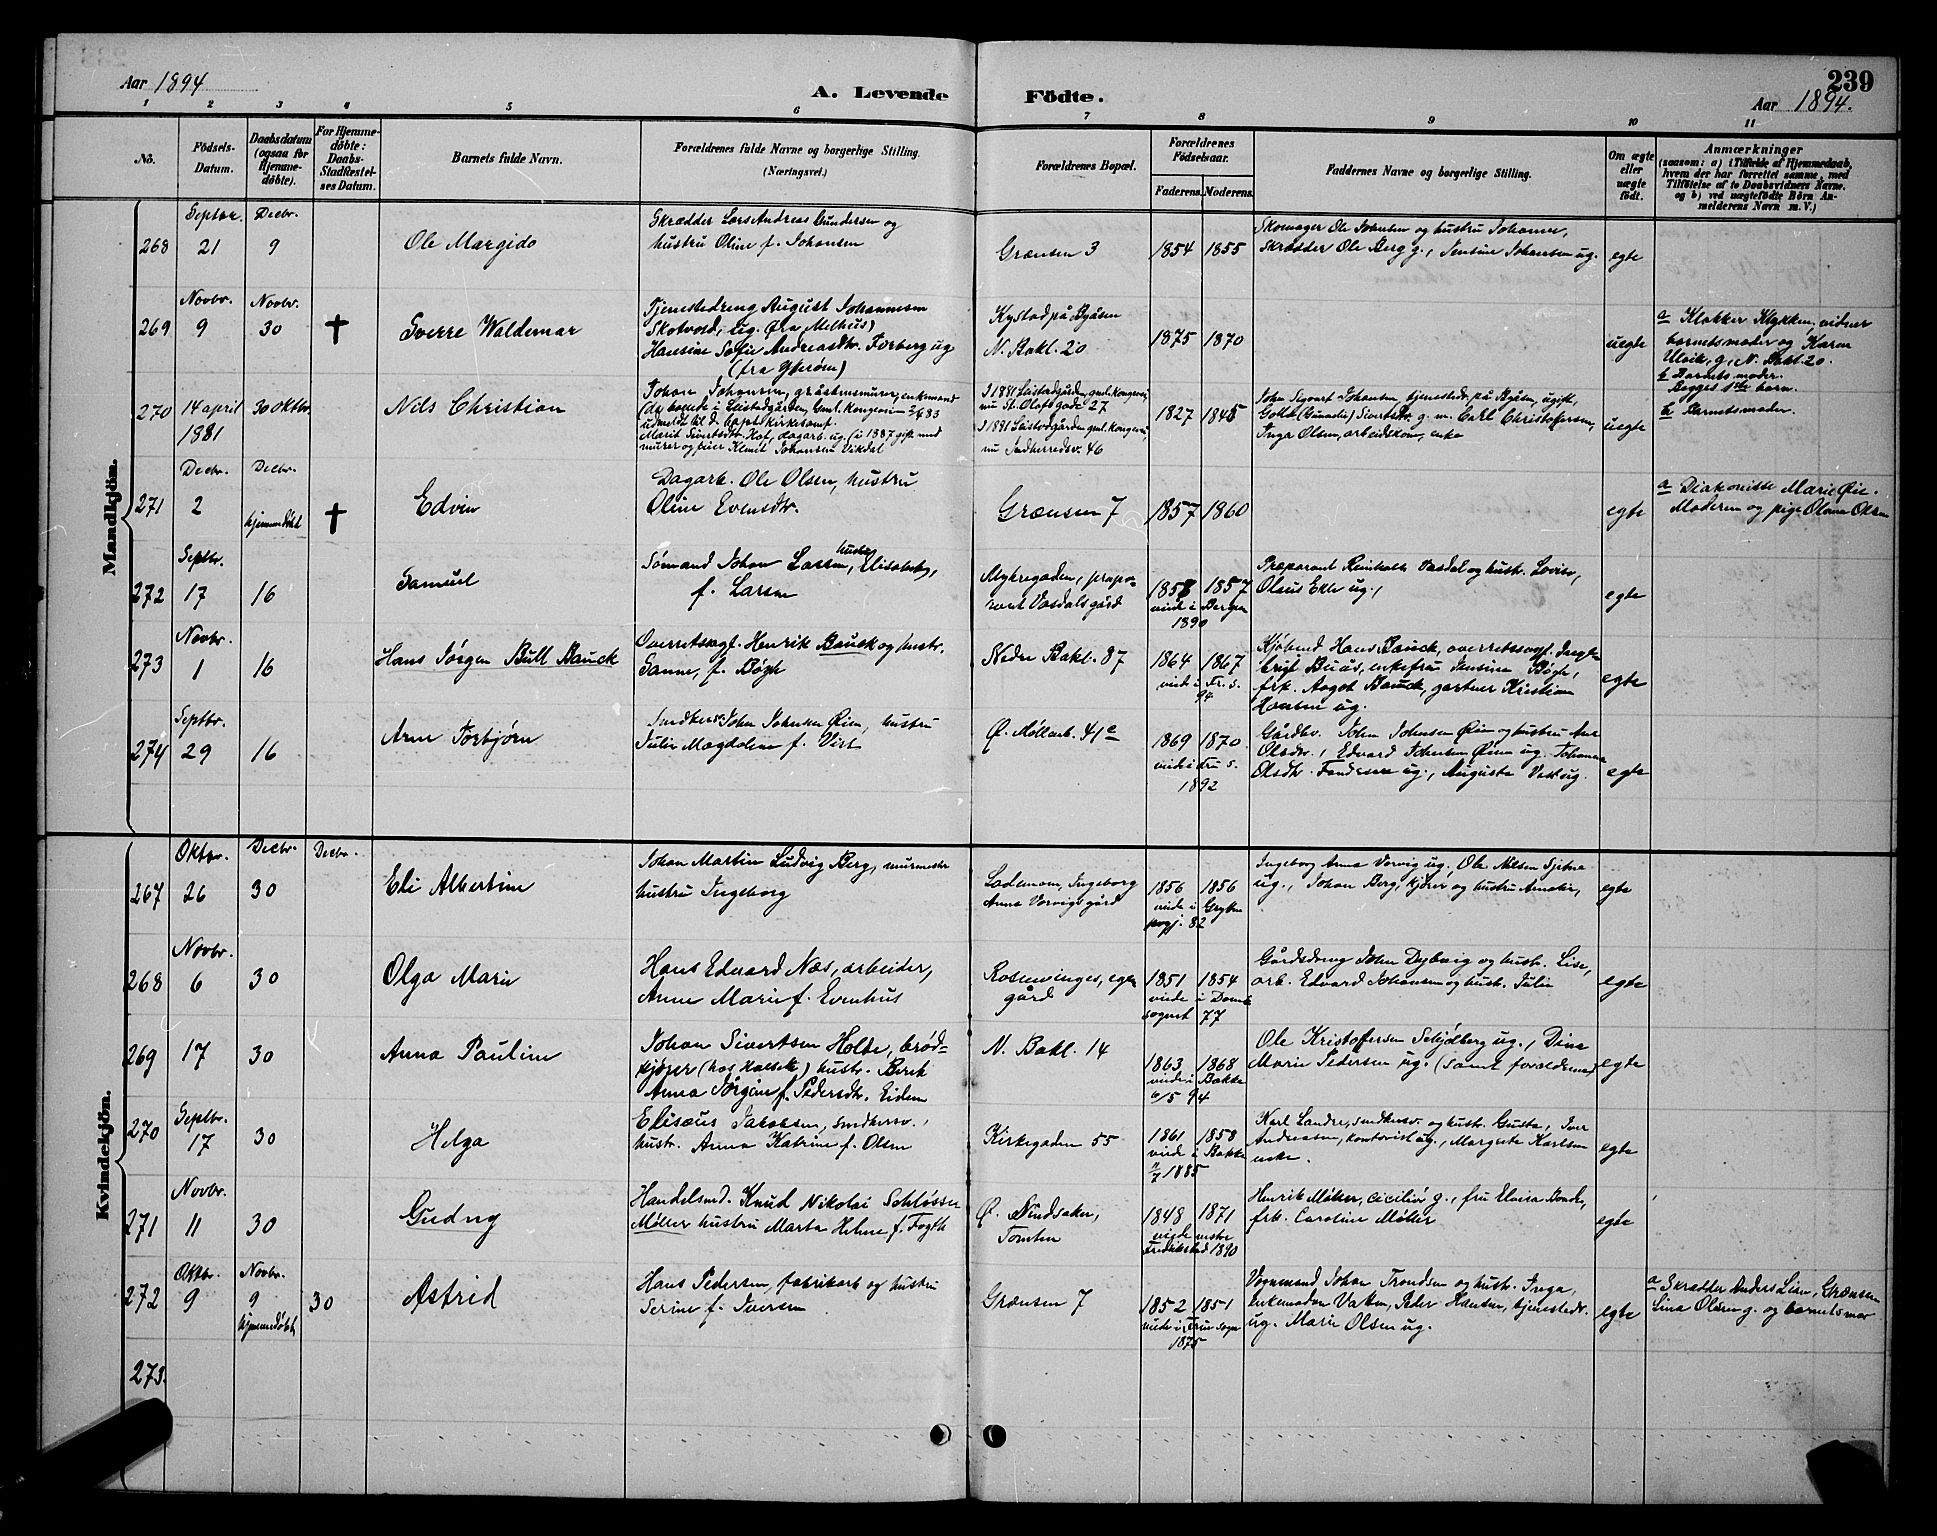 239
Aar 1894
A. Levende Fødte.
Aar 1894.
1 2 3 4 5 6 7 8 9 10 11
No.
Fødsels-Datum.
Daabsdatum (ogsaa for Hjemmedøbte).
For Hjemmedøbte: Daabs-Stadfæstelses Datum.
Barnets fulde Navn.
Forældrenes fulde Navne og borgerlige Stilling. (Næringsvei.)
Forældrenes Bopæl.
Forældrenes Fødselsaar.
Faderens. Moderens.
Faddernes Navne og borgerlige Stilling.
Om ægte eller uægte født.
Anmærkninger
(saasom: a) i Tilfælde af Hjemmedaab, hvem der har forrettet samme, med Tilføielse af to Daabsvidners Navne, og b) ved uægtefødte Børn Anmelderens Navn m. V.)
Mandkjön.
268 Septbr. 21 Decbr. 9
Ole Margido
Skrædder Lars Andreas Gundersen og
hustru Oline f. Johansen
Grænsen 3
1854 1855
Skomager Ole Johnsen og hustru Johanne,
Skrædder Ole Berg g., Jensine Johansen ug.
egte
269 Novbr. 9 Novbr. 30 †
Sverre Waldemar
Tjenestedreng August Johannesen
Skotvold, ug. (fra Melhus)
Hansine Sofie Andreasdtr. Forberg ug
(fra Ytterøen)
Kystad på Byåsen
N. Bakl. 20
1875 1870
uegte
a Klokker Klykken, vidner
barnets moder og Karen
Ulvik, g., N. Bakl. 20.
b Barnets moder.
Begges 1ste barn.
270 14 april 1881 30 Oktbr.
Nils Christian
Johan Johnsen, gråstensmurer, enkemand
(de boende i Leistadgården, Gml. Kongevei
udmeldt til d. baptistkirkesamf.
Marit Sivertsdtr. Hof, dagarb. ug. (i 1887 gift med
murer og eier Klemet Johansen Vikdal
I 1881 Leistadgården, gml. kongevei,
nu St. Olafs gade 27
I 1881 Leistadgården gml. kongevei,
nu Indherredsv. 46
1827 1845
John Sigvart Johansen, tjenestedr. på Byåsen, ugift,
Sivertsdtr. g. m. Carl Christofersen,
Inga Olsen, arbeidskone, enke
uegte
b Barnets moder.
271 Decbr. 2 Decbr. hjemmedøbt †
Edvin
Dagarb. Ole Olsen, hustru
Oline Evensdtr.
Grænsen 7
1857 1860
egte
a Diakonisse Marie Øie.
Moderen og pige Olava Olsen
272 Septbr. 17 16
Samuel
Sømand Johan Larsen, hustru Elisabeth,
f. Larsen
Vasdals gård
1858 1857
viede i Bergen
1890
Præparant Reinholt Vasdal og hust. Lovise,
Olaus Ekle ug.,
egte
273 Novbr. 1 16
Hans Jørgen Bull Bauck
Overretssagf. Henrik Bauck og hustr.
Sanne, f. Bøgh
Nedre Bakl. 87
1864 1867
viede i Fr. s.
94
Kjøbmd Hans Bauck, overretssagf. Ingle-
brigt Buås, enkefru Jensine Bøgh,
frk. Aagot Bauck, gartner Kristian
Hansen ug.
egte
274 Septbr. 29 16
Arne Torbjørn
Snedkersv. John Johnsen Øien, hustru
Julie Magdalene f. Vist
Ø. Møllenb. 41c
1869 1870
viede i Fru s.
1892
Gårdbr. John Johnsen Øien og hustru Ane
Olsdtr., Edvard Johnsen Øien ug. Johanna
Olsdtr. ug., Augusta Vist ug.
egte
Kvindekjön.
267 Oktbr. 26 Decbr. 30 Decbr.
Eli Albertine
Johan Martin Ludvig Berg, murmester
hustru Ingeborg
Lademoen, Ingeborg
Anna Vorvigs gård
1856 1856
viede i Grytten
prgj. 82
Ingeborg Anna Vorvig ug., Ole Nilsen Sjetne
ug., Johan Berg, kjører og hustru Amalie,
egte
268 Novbr. 6 30
Olga Marie
Hans Edvard Næs, arbeider,
Anne Marie f. Evenhus
Rosenvinges, egen
gård
1851 1854
viede i Domk
sognet 77
Gårdsdreng John Dybvig og hust. Lise,
arb. Edvard Johansen og hust. Julie
egte
269 17 30
Anna Pauline
Johan Sivertsen Holte, brød-
kjører (hos Halseth) hustr. Berit
Anna Jørgine f. Pedersdtr. Eidem
N. Bakl. 14
1863 1868
viede i Bakke
6/5 94
Ole Kristoffersen Schjølberg ug., Dina
Marie Pedersen ug. (samt forældrene)
egte
270 Septbr. 17 30
Helga
Elisæus Jakobsen, snedkersv.,
hustr. Anna Katrine f. Olsen
Kirkegaden 55
1861 1858
viede i Bakke
11/7 1885
Karl Landre, snedkersv. og hust. Gusta, Iver
Andreasen, kontorist ug., Margrete Karlsen
enke.
egte
271 Novbr. 11 30
Gudny
Handelsmd. Knud Nikolai Schløsser
Møller hustru Marta Helene f. Fogth
Ø. Sindsaker,
Tomten
1848 1871
vigde vestre
Fredrikstad 1890
Henrik Møller, g., fru Elvira Bonde,
frk. Caroline Møller
egte
272 Oktbr. 9 Novbr. 9 hjemmedøbt 30
Astrid
Hans Pedersen, fabrikarb og hustru
Serine f. Iversen
Grænsen 7
1852 1851
viede i Frue sogn
1875
Vognmand Johan Trondsen og hust. Inga,
enkemadam Vatten, Peder Hansen, tjenestedr.
ug. Marie Olsen ug.
egte
a Skrædder Anders Lien, Grænsen
Lina Olsen g. og barnets mor
273.